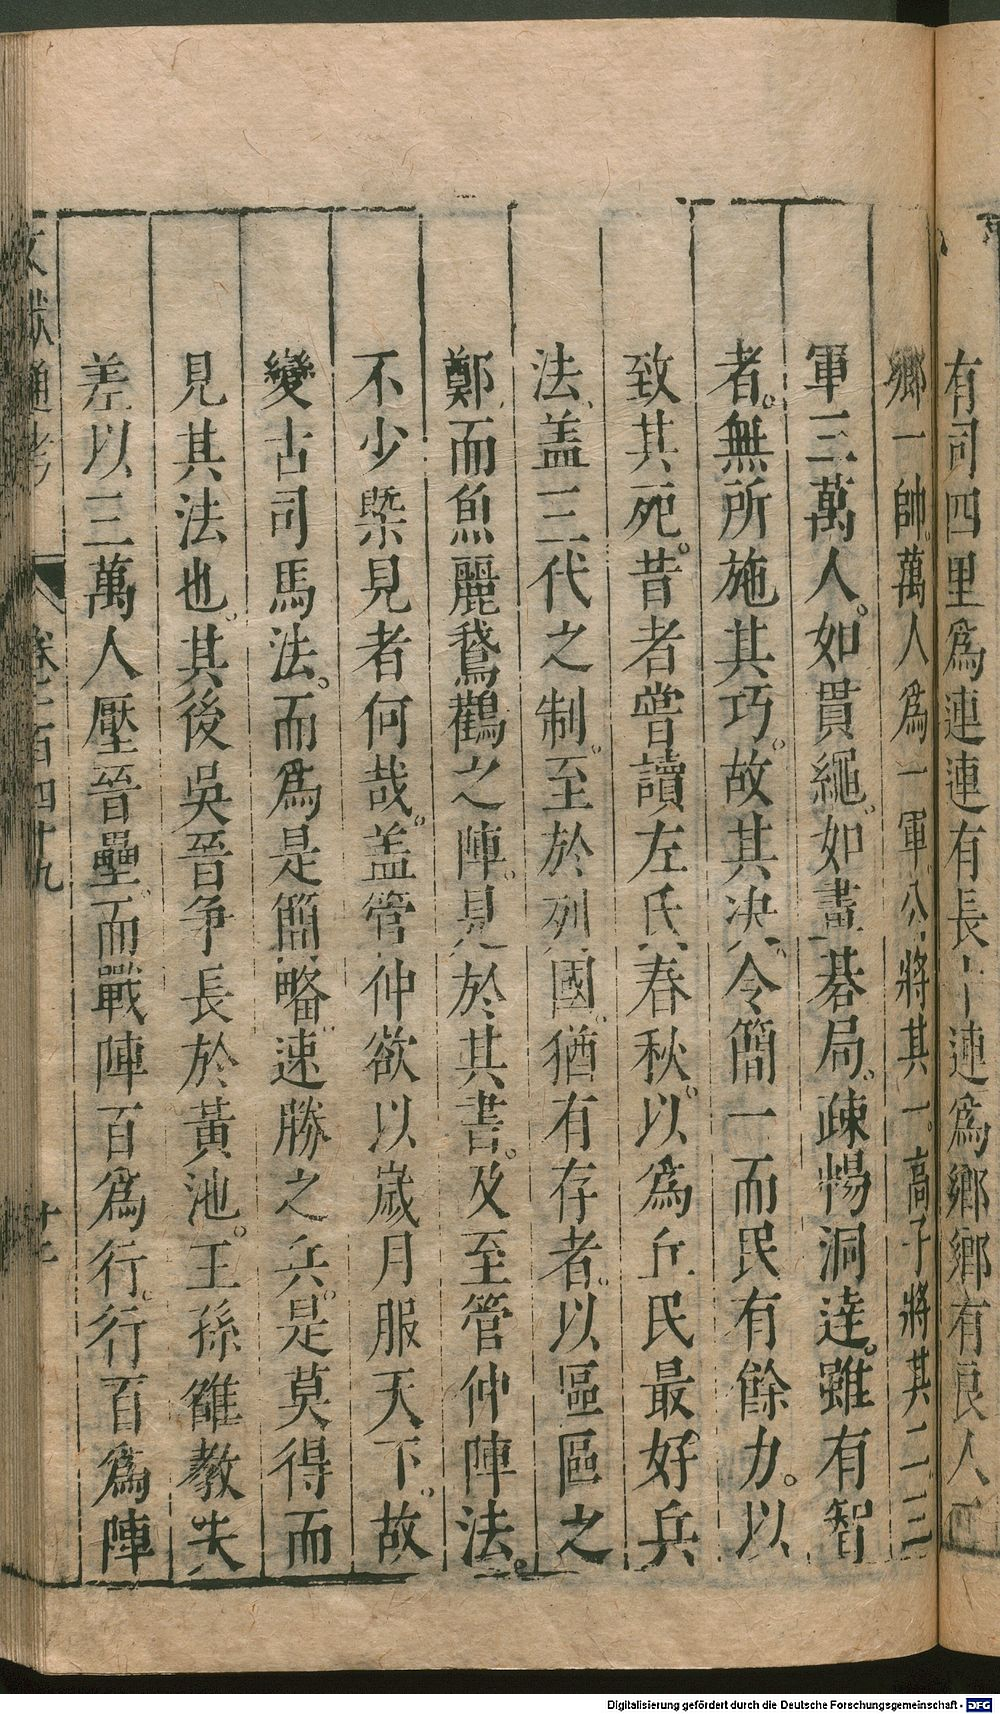 有司四里爲連連有長十連爲鄉鄉有良人
鄉一帥。萬人爲一軍。公將其一。高子將其二。三
軍三萬人。如貫繩。如畫碁局。疎暢洞達。雖有智
者。無所施其巧。故其决令簡一而民有餘力。以
致其死。昔者嘗讀左氏春秋。以爲丘民最好兵
法。盖三代之制。至於列國。猶有存者。以區區之
鄭。而魚麗鵞鸛之陣。見於其書。及至管仲陣法。
不少槩見者何哉。盖管仲欲以歲月服天下。故
變古司馬法。而爲是簡略速勝之兵。是莫得而
見其法也。其後吳晉争長於黃池。王孫雒教夫
差以三萬人壓晉壘。而戰陣百爲行。行百爲陣
文獻通考 卷一百四十九
Digitalisierung gefördert durch die Deutsche Forschungsgemeinschaft - DFG